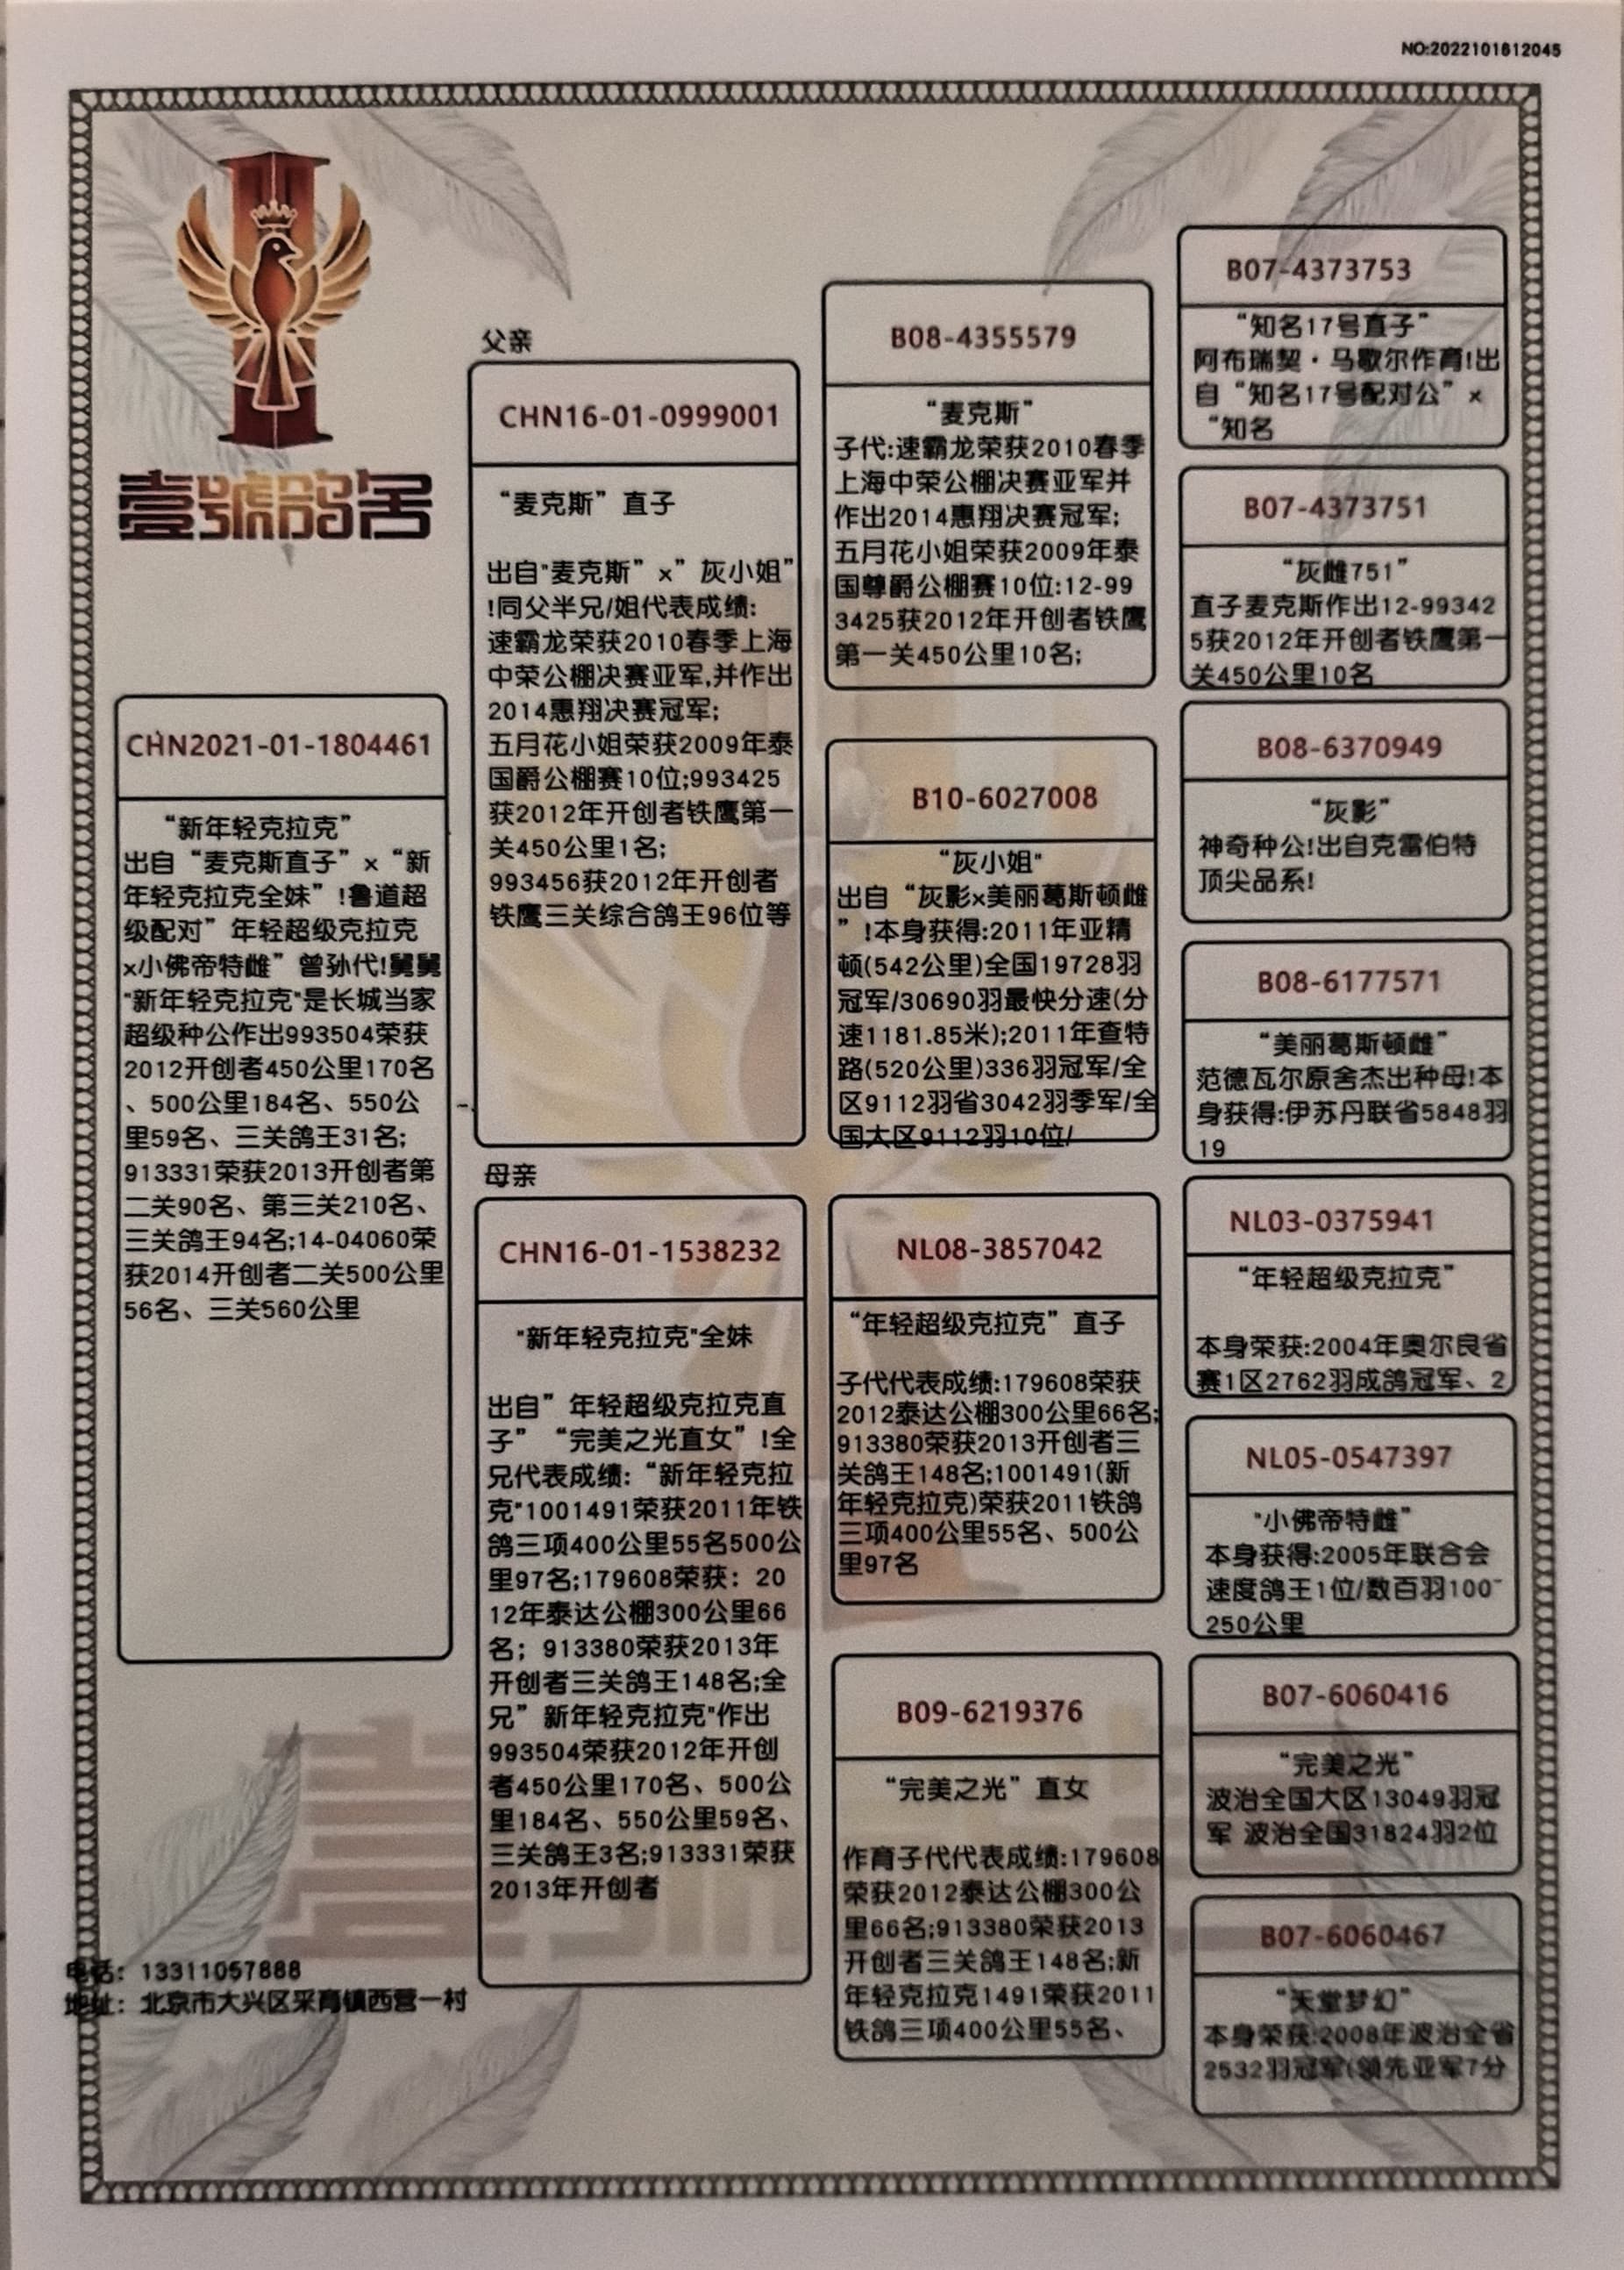 NO:2022101612045
壹號鸽舍
CHN2021-01-1804461
“新年轻克拉克”
出自“麦克斯直子”×“新
年轻克拉克全妹”!鲁道超
级配对”年轻超级克拉克
x小佛帝特雌”曾孙代!舅舅
"新年轻克拉克"是长城当家
超级种公作出993504荣获
2012开创者450公里170名
、500公里184名、550公
里59名、三关鸽王31名;
913331荣获2013开创者第
二关90名、第三关210名、
三关鸽王94名;14-04060荣
获2014开创者二关500公里
56名、三关560公里
父亲
CHN16-01-0999001
“麦克斯”直子
出自"麦克斯”×”灰小姐”
!同父半兄/姐代表成绩:
速霸龙荣获2010春季上海
中荣公棚决赛亚军,并作出
2014惠翔决赛冠军;
五月花小姐荣获2009年泰
国爵公棚赛10位;993425
获2012年开创者铁鹰第一
关450公里1名;
993456获2012年开创者
铁鹰三关综合鸽王96位等
母亲
CHN16-01-1538232
"新年轻克拉克"全妹
出自”年轻超级克拉克直
子”“完美之光直女”!全
兄代表成绩:“新年轻克拉
克"1001491荣获2011年铁
鸽三项400公里55名500公
里97名;179608荣获：20
12年泰达公棚300公里66
名；913380荣获2013年
开创者三关鸽王148名;全
兄”新年轻克拉克"作出
993504荣获2012年开创
者450公里170名、500公
里184名、550公里59名、
三关鸽王3名;913331荣获
2013年开创者
B08-4355579
“麦克斯”
子代:速霸龙荣获2010春季
上海中荣公棚决赛亚军并
作出2014惠翔决赛冠军;
五月花小姐荣获2009年泰
国尊爵公棚赛10位:12-99
3425获2012年开创者铁鹰
第一关450公里10名;
B10-6027008
“灰小姐"
出自“灰影x美丽葛斯顿雌
”!本身获得:2011年亚精
顿(542公里)全国19728羽
冠军/30690羽最快分速(分
速1181.85米);2011年查特
路(520公里)336羽冠军/全
区9112羽省3042羽季军/全
国大区9112羽10位/
NL08-3857042
“年轻超级克拉克”直子
子代代表成绩:179608荣获
2012泰达公棚300公里66名;
913380荣获2013开创者三
关鸽王148名;1001491(新
年轻克拉克)荣获2011铁鸽
三项400公里55名、500公
里97名
B09-6219376
“完美之光”直女
作育子代代表成绩:179608
荣获2012泰达公棚300公
里66名;913380荣获2013
开创者三关鸽王148名;新
年轻克拉克1491荣获2011
铁鸽三项400公里55名、
B07-4373753
“知名17号直子”
阿布瑞契·马歇尔作育!出
自“知名17号配对公”×
“知名
B07-4373751
“灰雌751”
直子麦克斯作出12-99342
5获2012年开创者铁鹰第一
关450公里10名
B08-6370949
“灰影”
神奇种公!出自克雷伯特
顶尖品系!
B08-6177571
“美丽葛斯顿雌”
范德瓦尔原舍杰出种母!本
身获得:伊苏丹联省5848羽
19
NL03-0375941
“年轻超级克拉克”
本身荣获:2004年奥尔良省
赛1区2762羽成鸽冠军、2
NL05-0547397
"小佛帝特雌”
本身获得:2005年联合会
速度鸽王1位/数百羽100-
250公里
B07-6060416
“完美之光”
波治全国大区13049羽冠
军 波治全国31824羽2位
B07-6060467
“天堂梦幻”
本身荣获:2008年波治全省
2532羽冠军(领先亚军7分
电话：13311057888
地址：北京市大兴区采育镇西营一村